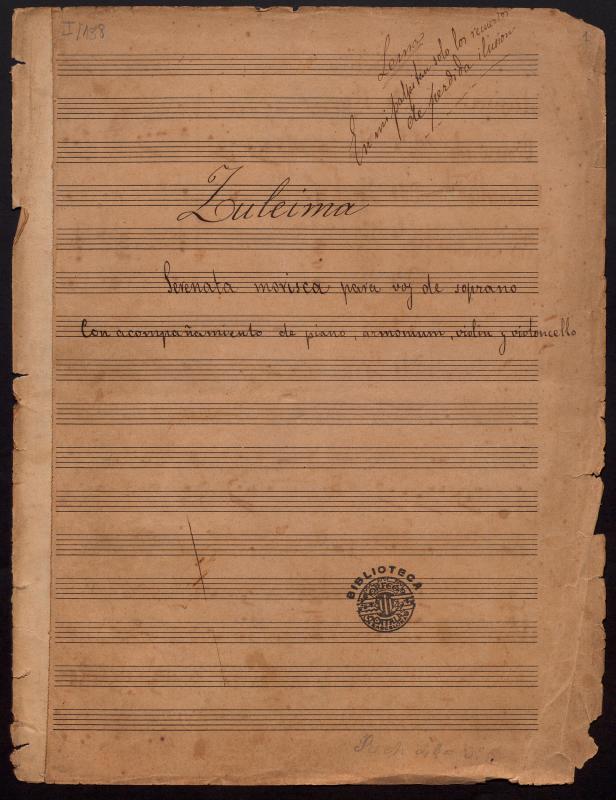 I/138
1
Lema
En mi palpitan solo los recuerdos
de perdida ilusion
Zuleima
Serenata morisca para voz de soprano
Con acompañamiento de piano, armonium, violin y violoncello
BIBLIOTECA